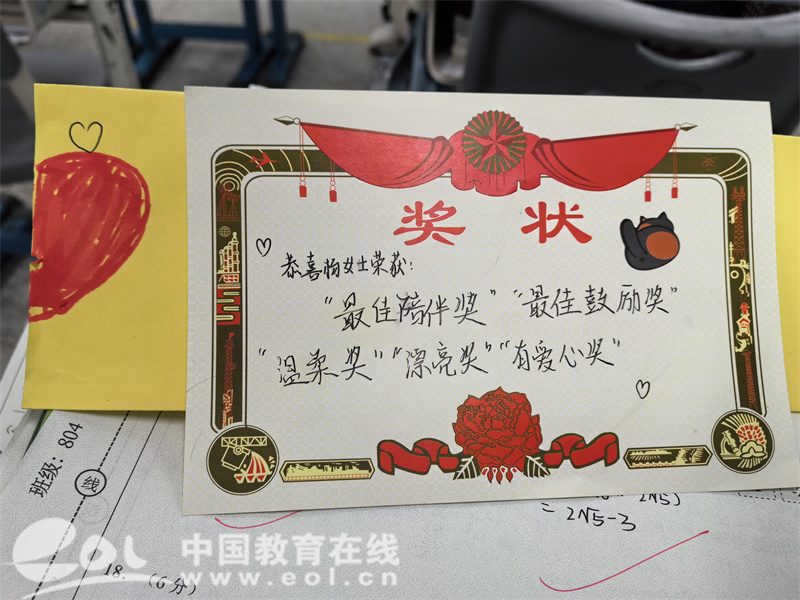 奖状
恭喜杨女士荣获:
“最佳陪伴奖” “最佳鼓励奖”
“温柔奖” “漂亮奖” “有爱心奖”
班级: 804
线
2√5)
= 2√5-3
18. (6分)
eol 中国教育在线
www.eol.cn